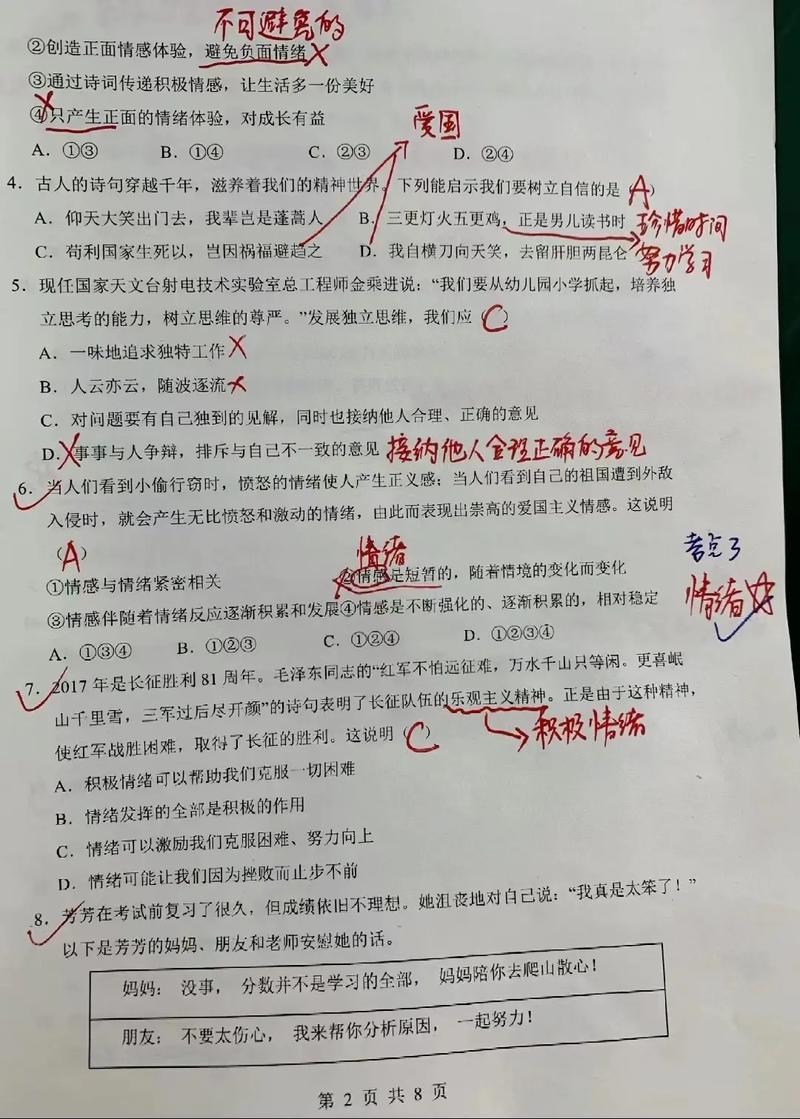 不可避免的
②创造正面情感体验，避免负面情绪
③通过诗词传递积极情感，让生活多一份美好
④只产生正面的情绪体验，对成长有益
爱国
A．①③ B．①④ C．②③ D．②④
4．古人的诗句穿越千年，滋养着我们的精神世界。下列能启示我们要树立自信的是（A）
A．仰天大笑出门去，我辈岂是蓬蒿人 B．三更灯火五更鸡，正是男儿读书时 珍惜时间
C．苟利国家生死以，岂因祸福避趋之 D．我自横刀向天笑，去留肝胆两昆仑 努力学习
5．现任国家天文台射电技术实验室总工程师金乘进说：“我们要从幼儿园小学抓起，培养独
立思考的能力，树立思维的尊严。”发展独立思维，我们应（C）
A．一味地追求独特工作
B．人云亦云，随波逐流
C．对问题要有自己独到的见解，同时也接纳他人合理、正确的意见
D．事事与人争辩，排斥与自己不一致的意见 接纳他人合理正确的意见
6．当人们看到小偷行窃时，愤怒的情绪使人产生正义感；当人们看到自己的祖国遭到外敌
入侵时，就会产生无比愤怒和激动的情绪，由此而表现出崇高的爱国主义情感。这说明
（A） 情绪 考点3
①情感与情绪紧密相关 ②情感是短暂的，随着情境的变化而变化
情绪
③情感伴随着情绪反应逐渐积累和发展④情感是不断强化的、逐渐积累的，相对稳定
A．①③④ B．①②③ C．①②④ D．①②③④
7．2017年是长征胜利81周年。毛泽东同志的“红军不怕远征难，万水千山只等闲。更喜岷
山千里雪，三军过后尽开颜”的诗句表明了长征队伍的乐观主义精神。正是由于这种精神，
使红军战胜困难，取得了长征的胜利。这说明（C） 积极情绪
A．积极情绪可以帮助我们克服一切困难
B．情绪发挥的全部是积极的作用
C．情绪可以激励我们克服困难、努力向上
D．情绪可能让我们因为挫败而止步不前
8．芳芳在考试前复习了很久，但成绩依旧不理想。她沮丧地对自己说：“我真是太笨了！”
以下是芳芳的妈妈、朋友和老师安慰她的话。
妈妈： 没事， 分数并不是学习的全部， 妈妈陪你去爬山散心！
朋友： 不要太伤心， 我来帮你分析原因， 一起努力！
第 2 页 共 8 页